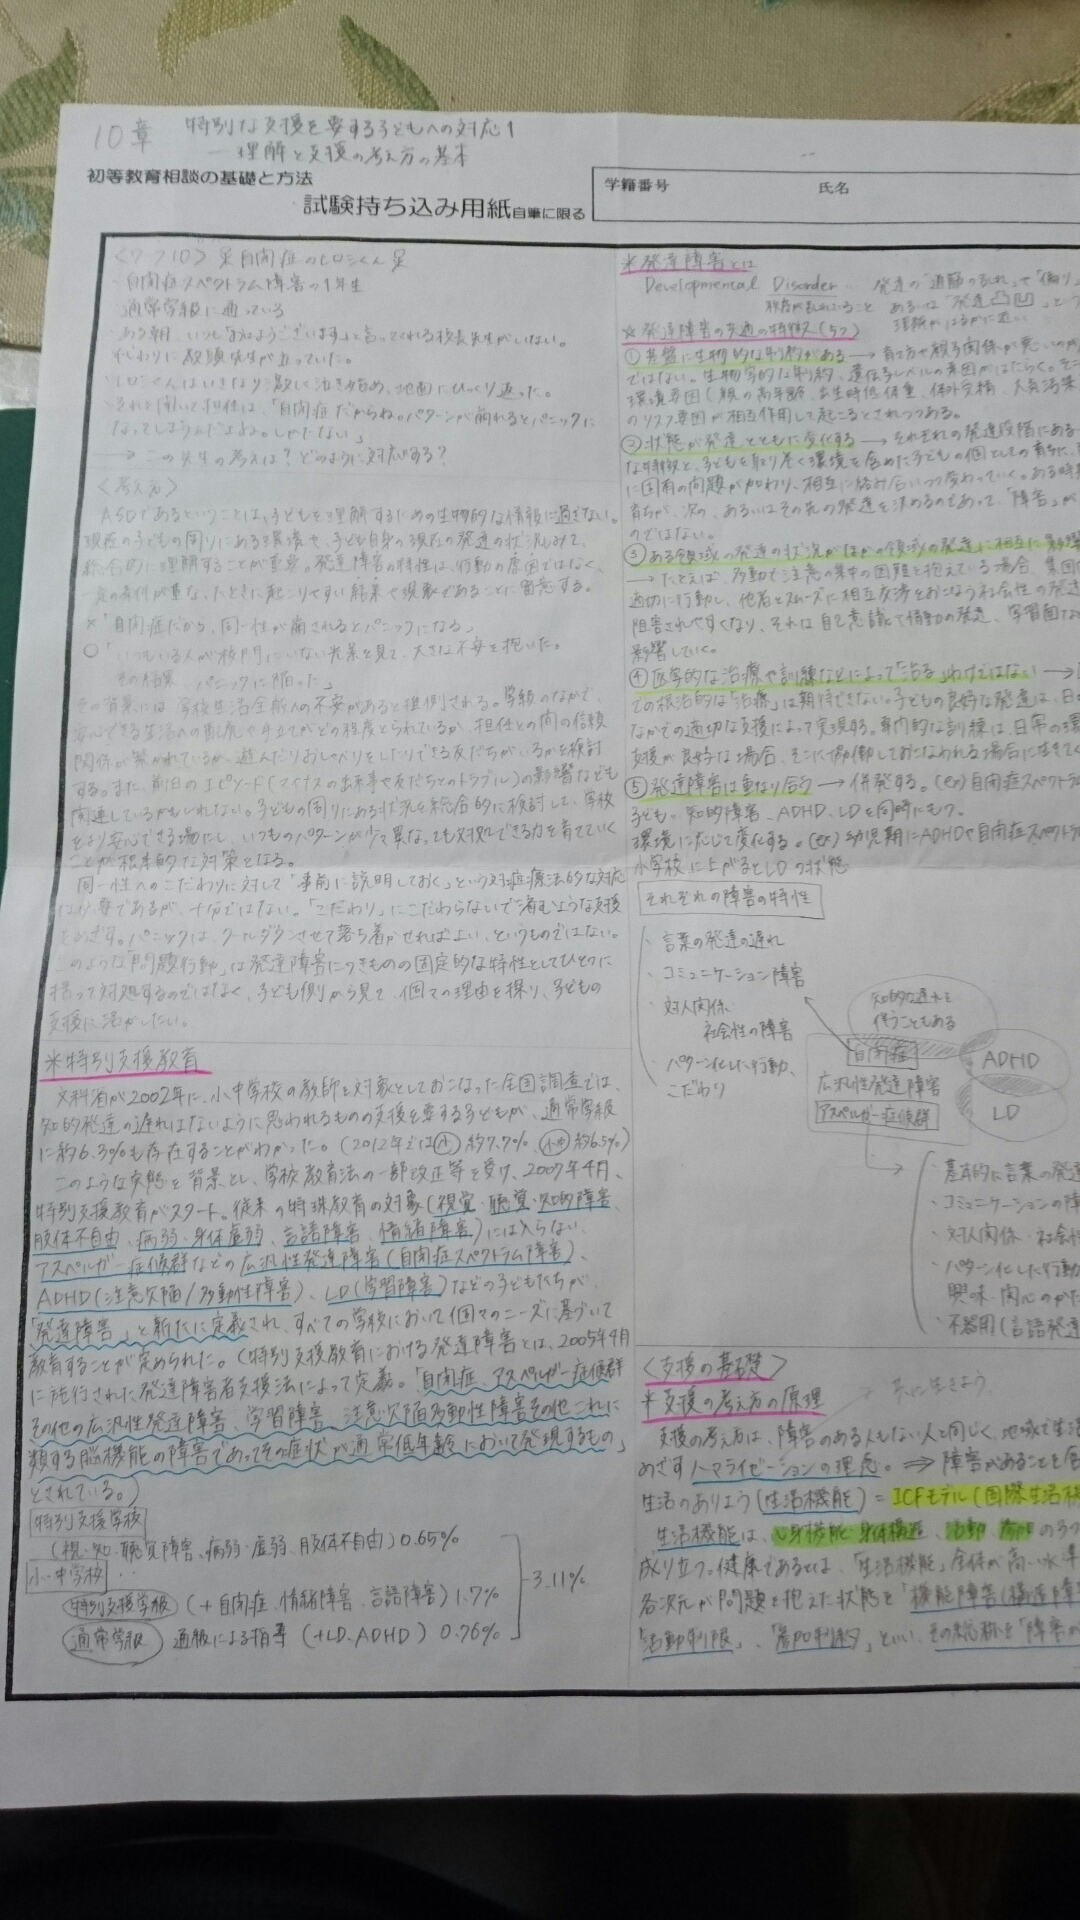 10章 特別な支援を要する子どもへの対応1
―理解と支援の考え方の基本
初等教育相談の基礎と方法
試験持ち込み用紙自筆に限る
学籍番号 氏名
〈ワーク10〉 自閉症のヒロシくん
自閉症スペクトラム障害の1年生
通常学級に通っている
ある朝、いつも「おはようございます」と言ってくれる校長先生がいない。
代わりに教頭先生が立っていた。
ヒロシくんはいきなり激しく泣き始め、地面にひっくり返った。
それを聞いて担任は、「自閉症だからね。パターンが崩れるとパニックに
なってしまうんだよね。しかたない」
→ この先生の考えは?どのように対応する?
〈考え方〉
ASDであるということは、子どもを理解するための生物的な情報に過ぎない。
現在の子どもの周りにある環境や、子ども自身の現在の発達の状況もみて、
総合的に理解することが重要。発達障害の特性は、行動の原因ではなく、
一定の条件が重なったときに起こりやすい結果や現象であることに留意する。
×「自閉症だから、同一性が崩されるとパニックになる」
○「いつもいる人が校門にいない光景を見て、大きな不安を抱いた。
その結果、パニックに陥った」
その背景には、学校生活全般への不安があると推測される。学級のなかで、
安心できる生活への配慮や手立てがどの程度とられているか、担任との間の信頼
関係が築かれているか、遊んだりおしゃべりをしたりできる友だちがいるかを検討
する。また、前日のエピソード(マイナスの出来事や友だちとのトラブル)の影響なども
関連しているかもしれない。子どもの周りにある状況を総合的に検討して、学校
をより安心できる場にし、いつものパターンが少々異なっても対処できる力を育てていく
ことが根本的な対策となる。
同一性へのこだわりに対して「事前に説明しておく」という対症療法的な対応
は必要であるが、十分ではない。「こだわり」にこだわらないで済むような支援
をめざす。パニックは、クールダウンさせて落ち着かせればよい、というものではない。
このような「問題行動」は発達障害につきものの固定的な特性としてひとつに
括って対処するのではなく、子ども側から見て、個々の理由を探り、子どもの
支援に活かしたい。
*特別支援教育
文科省が2002年に、小中学校の教師を対象としておこなった全国調査では、
知的発達の遅れはないように思われるものの支援を要する子どもが、通常学級
に約6.3%も存在することがわかった。(2012年では小約7.7% 小中約6.5%)
このような実態を背景とし、学校教育法の一部改正等を受け、2007年4月、
特別支援教育がスタート。従来の特殊教育の対象(視覚・聴覚・知的障害、
肢体不自由、病弱・身体虚弱、言語障害、情緒障害)には入らない、
アスペルガー症候群などの広汎性発達障害(自閉症スペクトラム障害)、
ADHD(注意欠陥/多動性障害)、LD(学習障害)などの子どもたちが、
「発達障害」と新たに定義され、すべての学校において個々のニーズに基づいて
教育することが定められた。(特別支援教育における発達障害とは、2005年4月
に施行された発達障害者支援法によって定義。「自閉症、アスペルガー症候群
その他の広汎性発達障害、学習障害、注意欠陥多動性障害その他これに
類する脳機能の障害であってその症状が通常低年齢において発現するもの」
とされている。)
特別支援学校
(視・知・聴覚障害、病弱・虚弱、肢体不自由)0.65%
小・中学校
特別支援学級 (+自閉症、情緒障害、言語障害) 1.7%
通常学級 通級による指導 (+LD、ADHD) 0.76%
3.11%
*発達障害とは
Developmental Disorder… 発達の「道筋の乱れ」や「偏り」
秩序が乱れていること あるいは「発達凸凹」という
理解がはるかに近い
☆発達障害の共通の特徴(5つ)
①基盤に生物的な制約がある→育て方や親子関係が悪いのが
ではない。生物学的な制約、遺伝子レベルの素因がはたらく。そこ
環境要因(親の高年齢、出生時低体重、体外受精、大気汚染
のリスク要因が相互作用して起こるとされつつある。
②状態が発達とともに変化する→それぞれの発達段階にある
な特徴と、子どもを取り巻く環境を含めた子どもの個としての育ちに、
に固有の問題が加わり、相互に絡み合いつつ変わっていく。ある時期
育ちが、次の、あるいはその先の発達を決めるのであって、「障害」が
のではない。
③ある領域の発達の状況がほかの領域の発達に相互に影響
→たとえば、多動で注意の集中の困難を抱えている場合、集団
適切に行動し、他者とスムーズに相互交渉をおこなう社会性の発達
阻害されやすくなり、それは自己意識や情動の発達、学習面な
影響していく。
④医学的な治療や訓練などによって「治る」わけではない→
での根治的な「治療」は期待できない。子どもの良好な発達は、日
なかでの適切な支援によって実現する。専門的な訓練は、日常の環
支援が良好な場合、そこに協働しておこなわれる場合に生きてく
⑤発達障害は重なり合う→併発する。(ex)自閉症スペクトラ
子どもが、知的障害、ADHD、LDを同時にもつ。
環境に応じて変化する。(ex)幼児期にADHDや自閉症スペクトラ
小学校に上がるとLDの状態
それぞれの障害の特性
・言葉の発達の遅れ
・コミュニケーション障害
・対人関係、
社会性の障害
・パターン化した行動、
こだわり
知的な遅れを
伴うこともある
自閉症
広汎性発達障害
アスペルガー症候群
ADHD
LD
・基本的に言葉の発達
・コミュニケーションの障
・対人関係・社会性
・パターン化した行動
興味・関心のかた
・不器用(言語発達
〈支援の基礎〉
*支援の考え方の原理
共に生きよう
支援の考え方は、障害のある人もない人と同じく、地域で生活
めざすノーマライゼーションの理念。⇒障害があることを含
生活のありよう(生活機能)=ICFモデル(国際生活機
生活機能は、心身機能・身体構造、活動、参加の3つ
成り立つ。健康であるとは、「生活機能」全体が高い水準
各次元が問題を抱えた状態を「機能障害(構造障
「活動制限」、「参加制約」といい、その総称を「障害